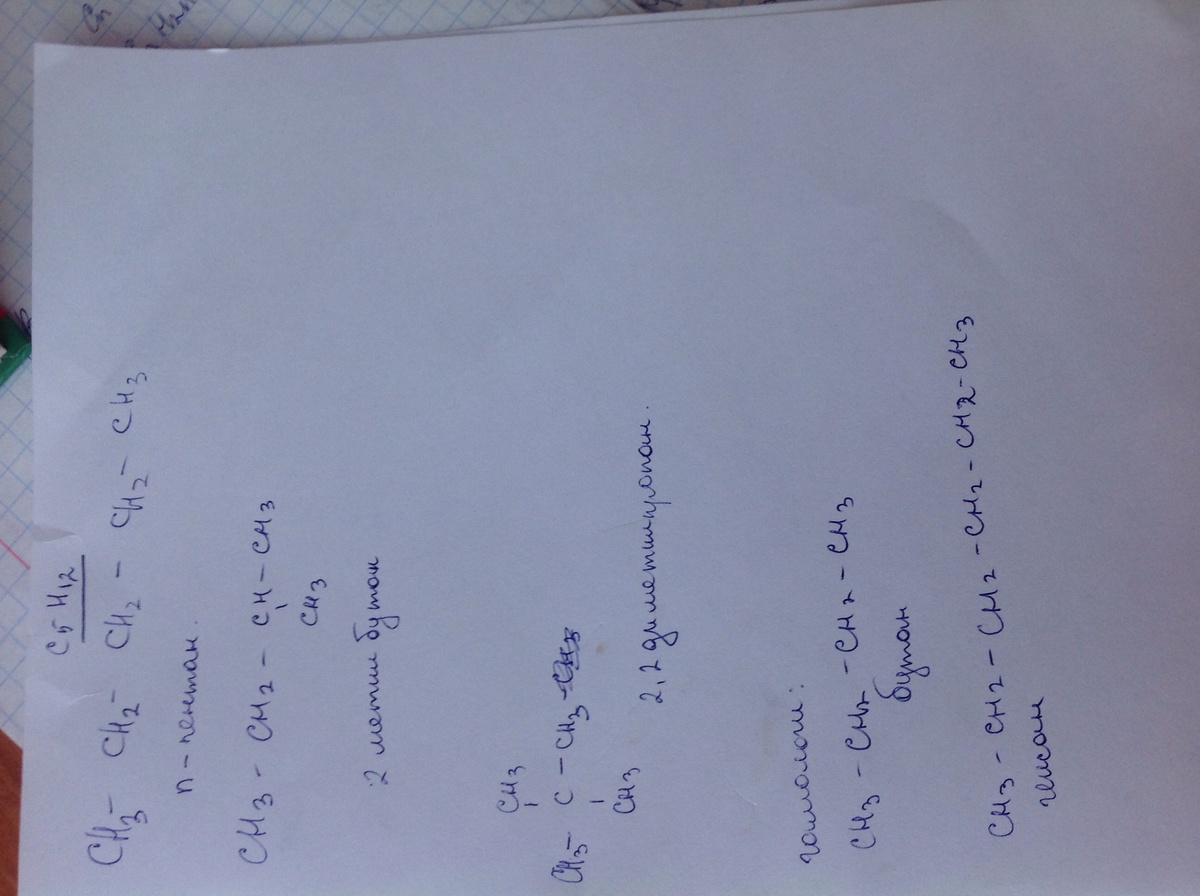 C5H12
CH3 - CH2 - CH2 - CH2 - CH3
n - пентан.
CH3 - CH2 - CH - CH3
CH3
2 метил бутан
CH3
CH3 - C - CH3
CH3
2,2 диметилпропан.
гомологи:
CH3 - CH2 - CH2 - CH3
бутан
CH3 - CH2 - CH2 - CH2 - CH2 - CH3
гексан